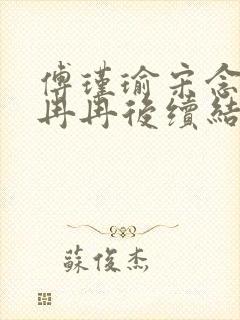 傅瑾瑜宋念
冉冉後續結
蘇俊杰